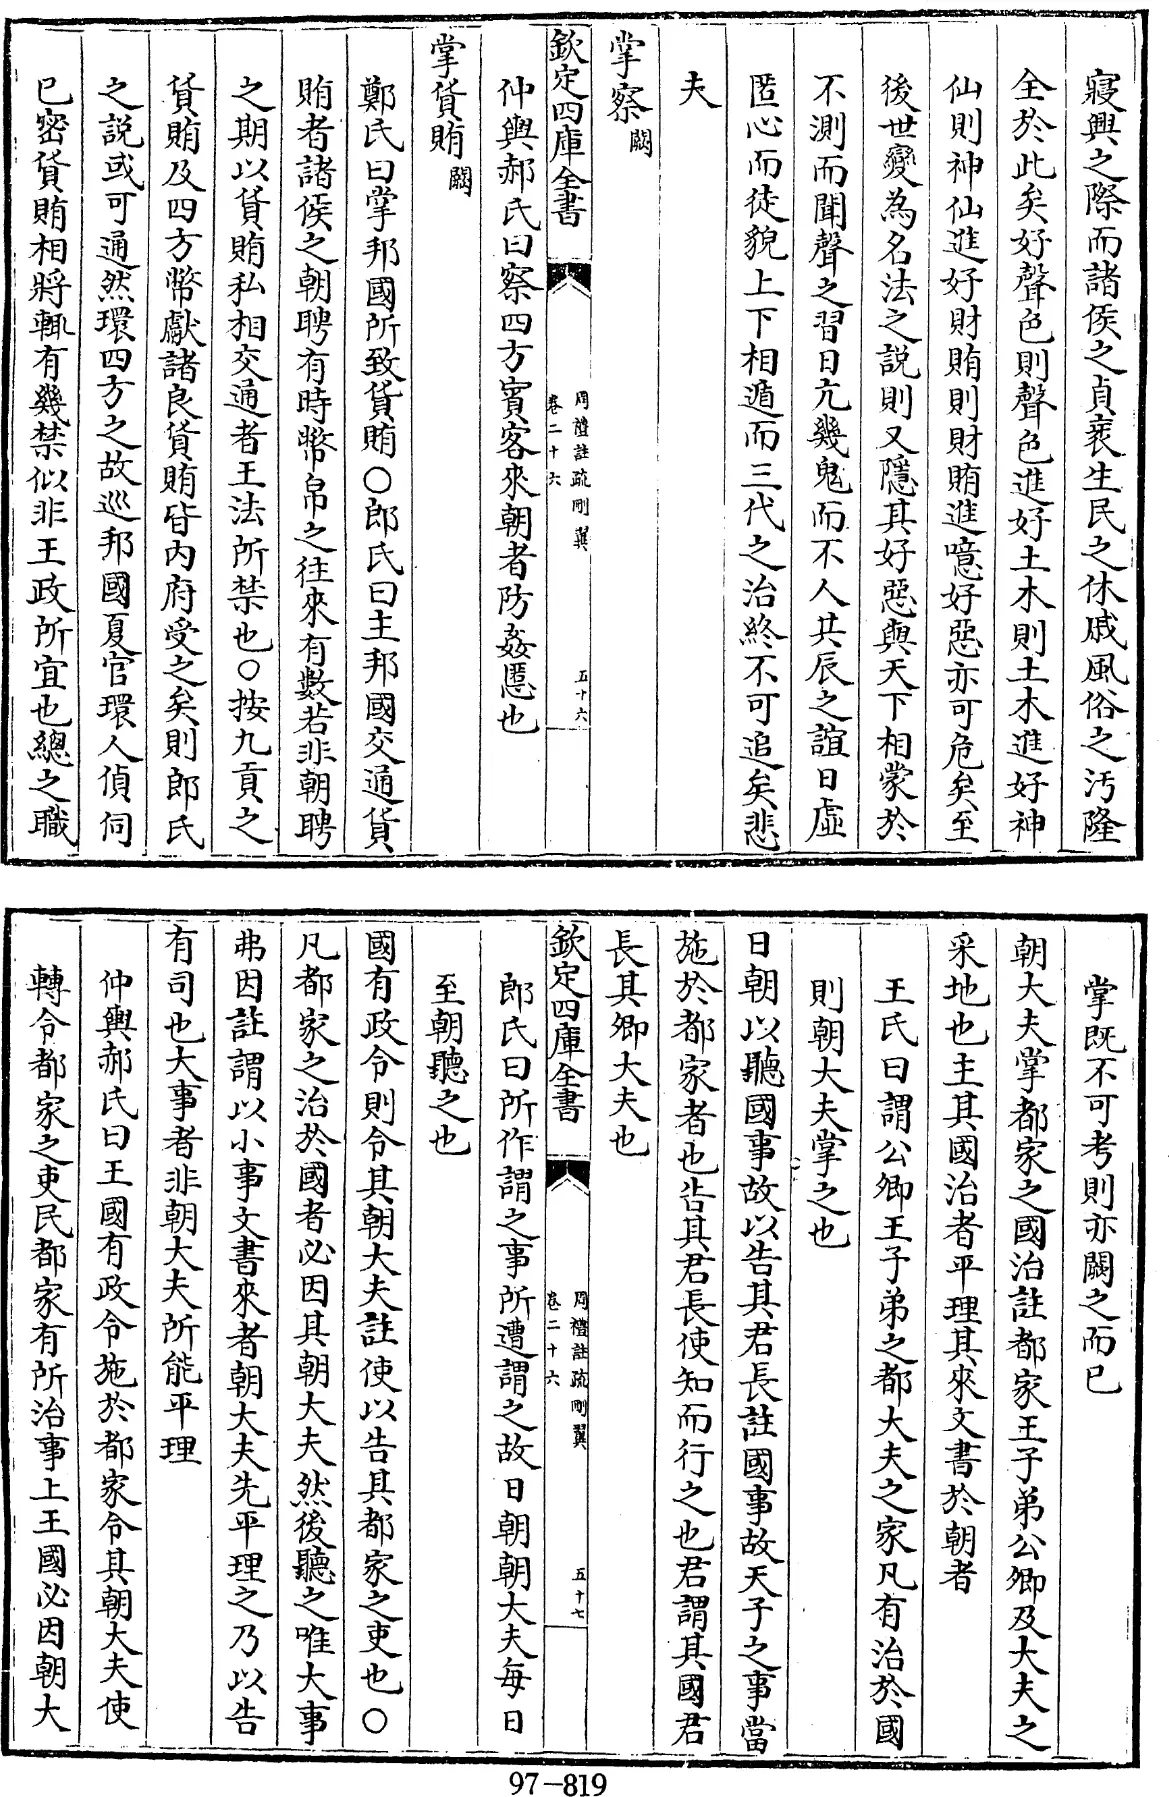 寢興之際而諸侯之貞衺生民之休戚風俗之汚隆
全於此矣好聲色則聲色進好土木則土木進好神
仙則神仙進好財賄則財賄進噫好惡亦可危矣至
後世變為名法之説則又隱其好惡與天下相蒙於
不測而聞聲之習日亢幾鬼而不人共辰之誼日虛
匿心而徒貌上下相遁而三代之治終不可追矣悲
夫
掌察闕
欽定四庫全書
周禮註疏刪翼
卷二十六
五十六
仲輿郝氏曰察四方賓客來朝者防姦慝也
掌貨賄闕
鄭氏曰掌邦國所致貨賄○郎氏曰主邦國交通貨
賄者諸侯之朝聘有時幣帛之往來有數若非朝聘
之期以貨賄私相交通者王法所禁也○按九貢之
貨賄及四方幣獻諸良貨賄皆内府受之矣則郎氏
之説或可通然環四方之故巡邦國夏官環人偵伺
已密貨賄相將輒有幾禁似非王政所宜也總之職
掌既不可考則亦闕之而已
朝大夫掌都家之國治註都家王子弟公卿及大夫之
采地也主其國治者平理其來文書於朝者
王氏曰謂公卿王子弟之都大夫之家凡有治於國
則朝大夫掌之也
日朝以聽國事故以告其君長註國事故天子之事當
施於都家者也告其君長使知而行之也君謂其國君
長其卿大夫也
欽定四庫全書
周禮註疏刪翼
卷二十六
五十七
郎氏曰所作謂之事所遭謂之故日朝朝大夫每日
至朝聽之也
國有政令則令其朝大夫註使以告其都家之吏也○
凡都家之治於國者必因其朝大夫然後聽之唯大事
弗因註謂以小事文書來者朝大夫先平理之乃以告
有司也大事者非朝大夫所能平理
仲輿郝氏曰王國有政令施於都家令其朝大夫使
轉令都家之吏民都家有所治事上王國必因朝大
97-819